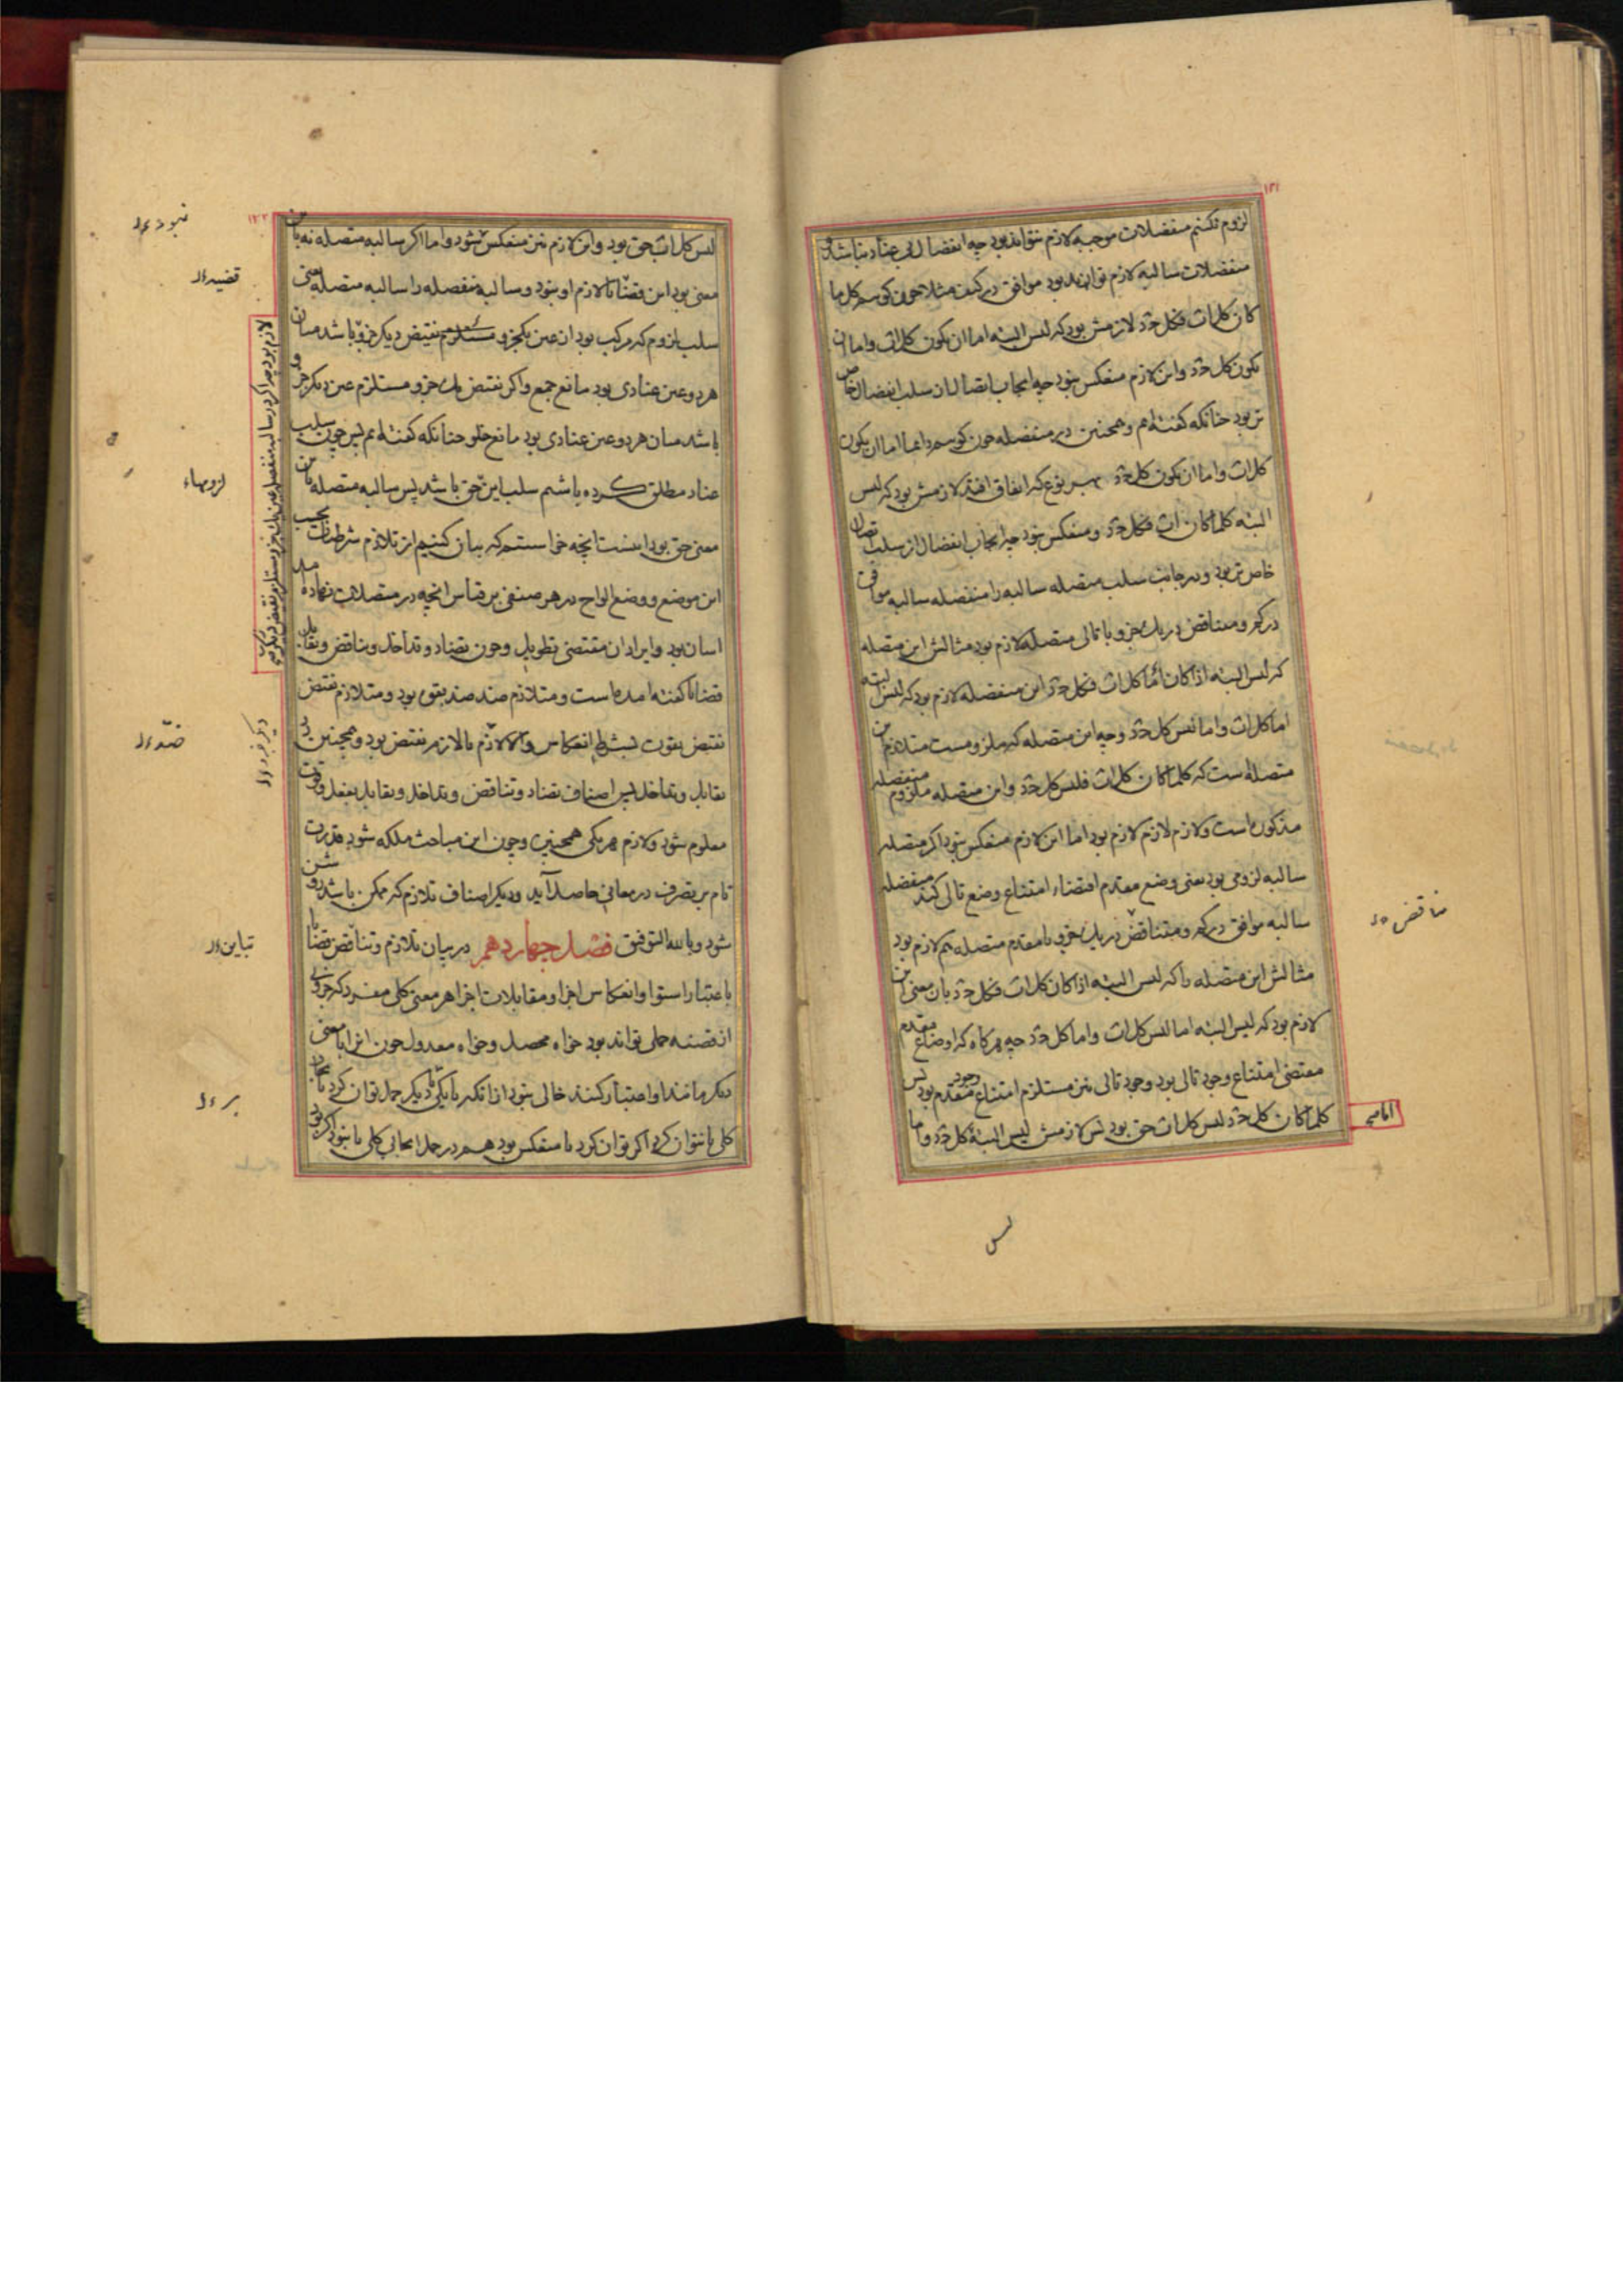 ۱۲۱
لزوم نکنیم منفصلات موجبه لازم نتواند بود چه انفصال بی عناد نباشد و
منفصلات سالبه لازم تواند بود موافق در کیف مثلا چون کوییم کل ما
کان کل اب فکل جد لازمش بود که لیس البته اما ان یکون کل اب واما ان
یکون کل جد واین لازم منعکس نبود چه ایجاب اتصال از سلب انفصال خاص
تر بود چنانکه کفته ایم وهمچنین در منفصله چون کوییم دایما اما ان یکون
کل اب واما ان یکون کل جد بهر نوع که اتفاق افتد لازمش بود که لیس
البته کلما کان اب فکل جد ومنعکس نبود چه ایجاب انفصال از سلب اتصال
خاص تر بود ودر جانب سلب متصله سالبه را منفصله سالبه موافق
در کم ومناقض در یک جزو با تالی متصله لازم بود مثالش این متصله
که لیس البته اذا کان کل اب فکل جد این منفصله لازم بود که لیس البته
اما کل اب واما لیس کل جد وچه این متصله که ملزومست متلازم این
متصله است که کلما کان کل اب فلیس کل جد واین متصله ملزوم منفصله
مذکور است ولازم لازم لازم بود اما این لازم منعکس نبود اکر متصله
سالبه لزومی بود یعنی وضع مقدم اقتضاء امتناع وضع تالی کند منفصله
سالبه موافق در کم ومتناقض در یک جزو با مقدم متصله هم لازم بود
مثالش این متصله را که لیس البته اذا کان کل اب فکل جد بان معنی این
لازم بود که لیس البته اما لیس کل اب واما کل جد چه هرکاه که اوضاع مقدم
مقتضی امتناع وجود تالی بود وجود تالی نیز مستلزم امتناع وجود مقدم بود پس
کلما کان کل جد لیس کل اب حق بود پس لازمش لیس البته کل جد واما
لیس
مناقض
۱۲۲
لیس کل اب حق بود واین لازم نیز منعکس نشود واما اکر سالبه متصله نه بان
معنی بود این قضایا لازم او نبود وسالبه منفصله را سالبه متصله بمعنی
سلب لزوم که مرکب بود از عین یکجزو مستلزم نقیض دیکر جزو باشد میان
هر دو عین عنادی بود مانع جمع واکر نقیض یک جزو مستلزم عین دیکر جزو
باشد میان هر دو عین عنادی بود مانع خلو چنانکه کفته ایم پس چون سلب
عناد مطلق کرده باشیم سلب این حق باشد پس سالبه متصله باین
معنی حق بود اینست آنچه خواستیم که بیان کنیم از تلازم شرطیات بحسب
این موضع ووضع الواح در هر صنفی بر قیاس آنچه در متصلات نهاده ایم
اسان بود وایراد ان مقتضی تطویل وچون تضاد وتداخل وتناقض وتقابل
قضایا کفته امده است ومتلازم ضد ضد بقوت بود ومتلازم نقیض
نقیض بقوت بشرط انعکاس والا لازم یا لازمه نقیض بود وهمچنین در
تقابل وتداخل پس اصناف تضاد وتناقض وتداخل وتقابل بفعل وقوت
معلوم شود ولازم هر یکی همچنین وچون این مباحث ملکه شود قدرت
تام بر تصرف در معانی حاصل آید ودیکر اصناف تلازم که ممکن باشد روشن
شود وبالله التوفیق فصل چهاردهم در بیان تلازم وتناقض قضایا
باعتبار استوا وانعکاس اجزا ومقابلات اجزا هر معنی کلی مفرد که جزوی
از قضیه حملی تواند بود خواه محصل وخواه معدول چون انرا با معنی
دیکر مانند او اعتبار کنند خالی نبود از انکه یا یکی را بر دیکر حمل توان کرد بایجاب
کلی یا نتوان کرد اکر توان کرد یا منعکس بود هم در حمل ایجابی کلی یا نبود اکر بود
نبود
قضیه
لزومیاء
ضدّ
تباین
بر